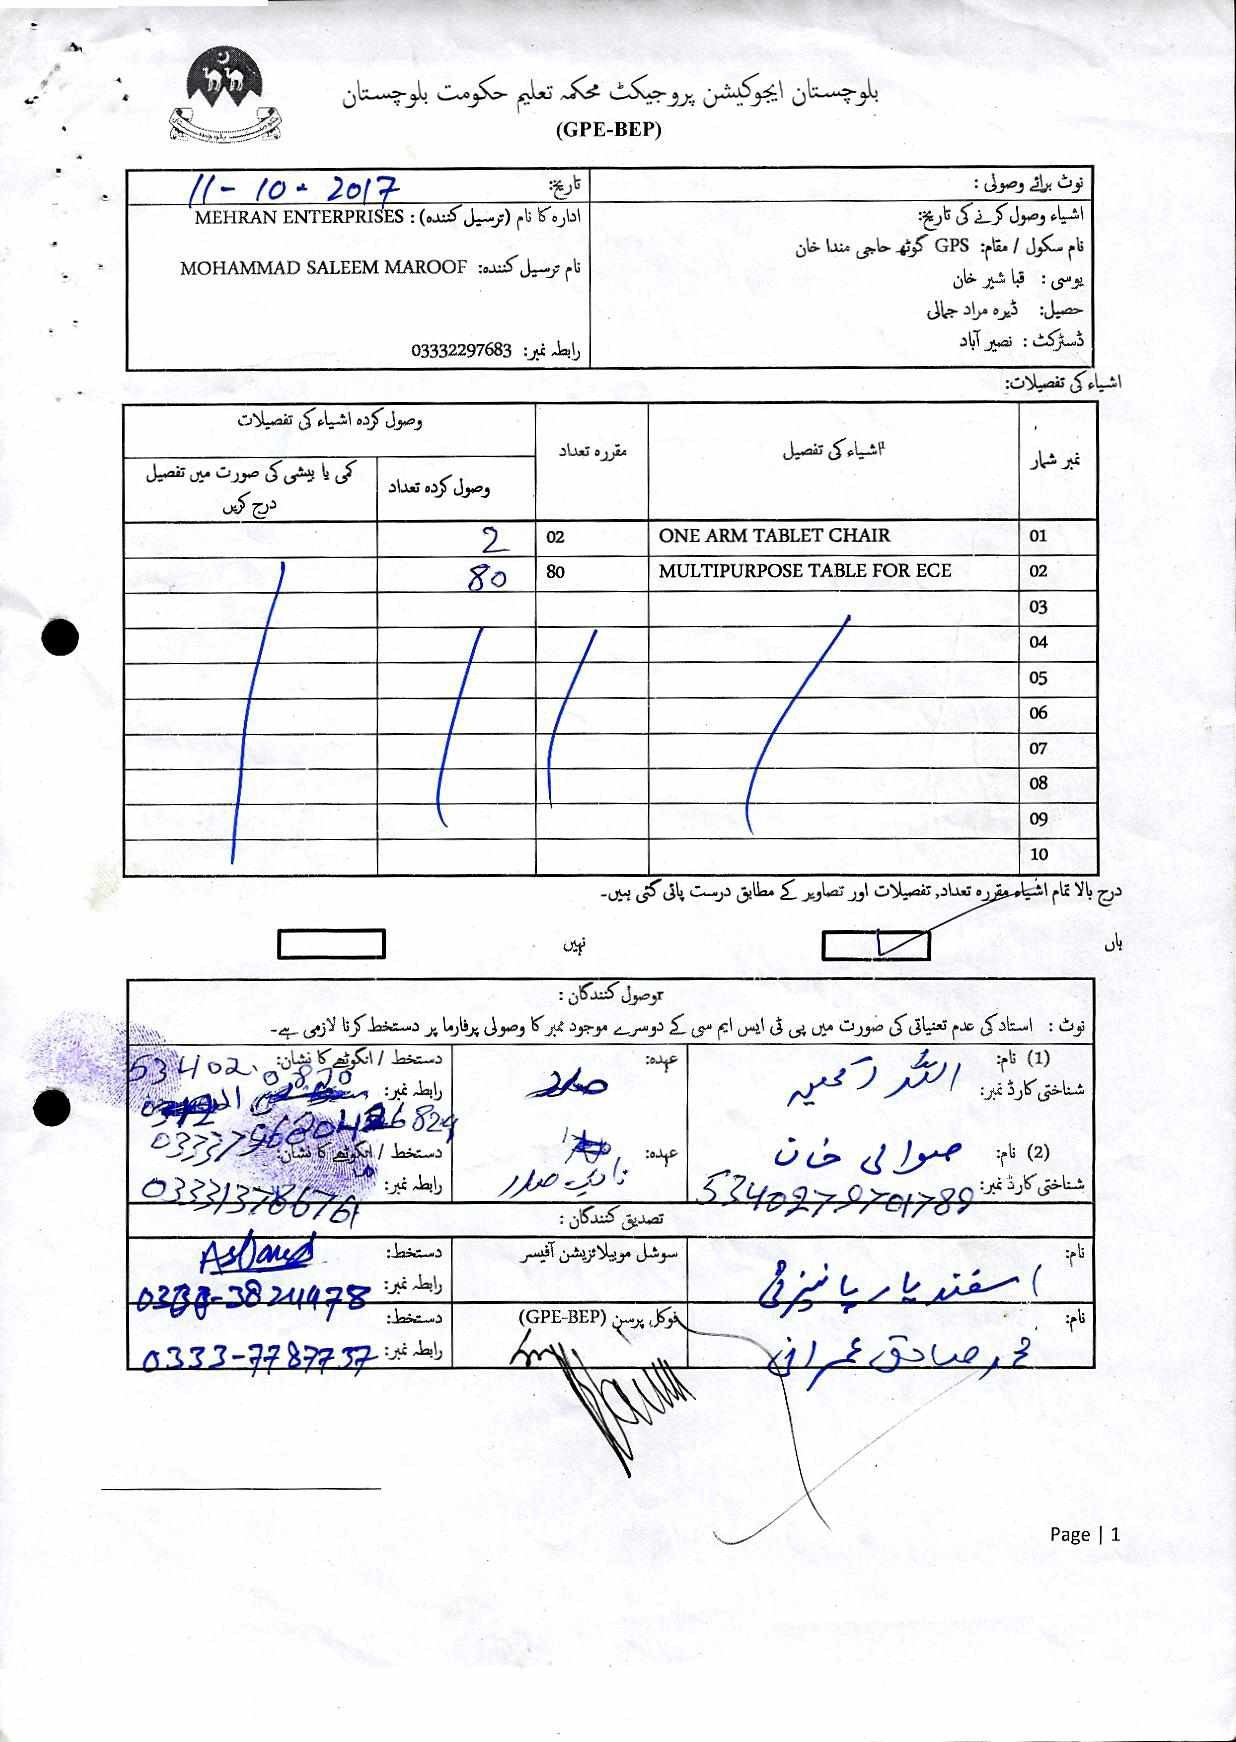 بلوچستان ایجوکیشن پروجیکٹ محکمہ تعلیم حکومت بلوچستان
(GPE-BEP)
نوٹ برائے وصولی :
اشیاء وصول کرنے کی تاریخ:
نام سکول / مقام: GPS گوٹھ حاجی مندا خان
یوسی : قبا شیر خان
حصیل: ڈیرہ مراد جمالی
ڈسٹرکٹ : نصیر آباد
تاریخ: 11-10-2017
ادارہ کا نام (ترسیل کنندہ) : MEHRAN ENTERPRISES
نام ترسیل کنندہ: MOHAMMAD SALEEM MAROOF
رابطہ نمبر: 03332297683
اشیاء کی تفصیلات:
نمبر شمار اشیاء کی تفصیل مقررہ تعداد وصول کردہ اشیاء کی تفصیلات
وصول کردہ تعداد کمی یا بیشی کی صورت میں تفصیل درج کریں
01 ONE ARM TABLET CHAIR 02 2
02 MULTIPURPOSE TABLE FOR ECE 80 80
03
04
05
06
07
08
09
10
درج بالا تمام اشیاء مقررہ تعداد, تفصیلات اور تصاویر کے مطابق درست پائی گئی ہیں۔
ہاں نہیں
وصول کنندگان :
نوٹ : استاد کی عدم تعیناتی کی صورت میں پی ٹی ایس ایم سی کے دوسرے موجود ممبر کا وصولی پرفارما پر دستخط کرنا لازمی ہے۔
(1) نام: عہدہ: صدر دستخط / انگوٹھے کا نشان:
شناختی کارڈ نمبر: رابطہ نمبر:
(2) نام: خان عہدہ: نائب صدر دستخط / انگوٹھے کا نشان:
شناختی کارڈ نمبر: 5340279701789 رابطہ نمبر: 03331378676
تصدیق کنندگان :
نام: اسفند یار سوشل موبیلائزیشن آفیسر دستخط:
رابطہ نمبر: 0333-3824478
نام: محمد صادق عمرانی فوکل پرسن (GPE-BEP) دستخط:
رابطہ نمبر: 0333-7787737
Page | 1